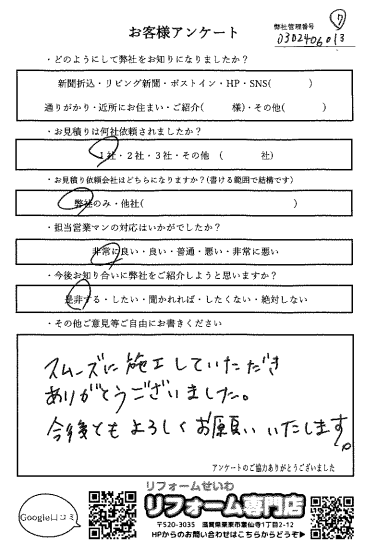 ⑦
お客様アンケート
弊社管理番号
0302406013
・どのようにして弊社をお知りになりましたか？
新聞折込・リビング新聞・ポストイン・HP・SNS(　　　)
通りがかり・近所にお住まい・ご紹介(　　　様)・その他(　　　)
・お見積りは何社依頼されましたか？
1社・2社・3社・その他　(　　　社)
・お見積り依頼会社はどちらになりますか？(書ける範囲で結構です)
弊社のみ・他社(　　　)
・担当営業マンの対応はいかがでしたか？
非常に良い・良い・普通・悪い・非常に悪い
・今後お知り合いに弊社をご紹介しようと思いますか？
是非する・したい・聞かれれば・したくない・絶対しない
・その他ご意見等ご自由にお書きください
スムーズに施工していただき
ありがとうございました。
今後ともよろしくお願いいたします。
アンケートのご協力ありがとうございました
Google口コミ
リフォームせいわ
リフォーム専門店
〒520-3035　滋賀県栗東市霊仙寺1丁目2-12
HPからのお問い合わせはこちらからどうぞ▶